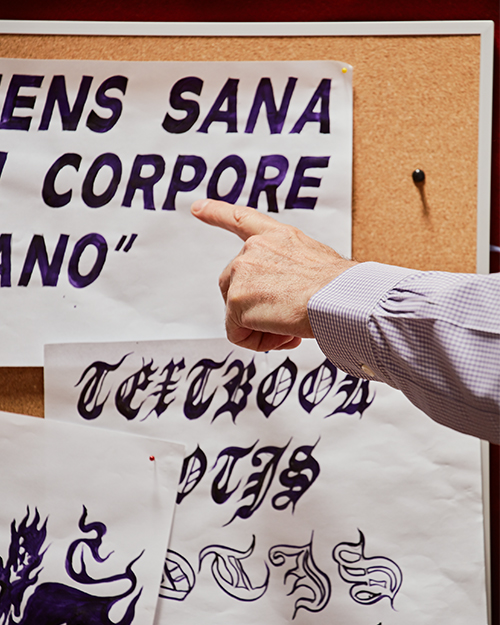 ENS SANA
CORPORE
ANO”
TEXTBOOK
OTIS
OTIS